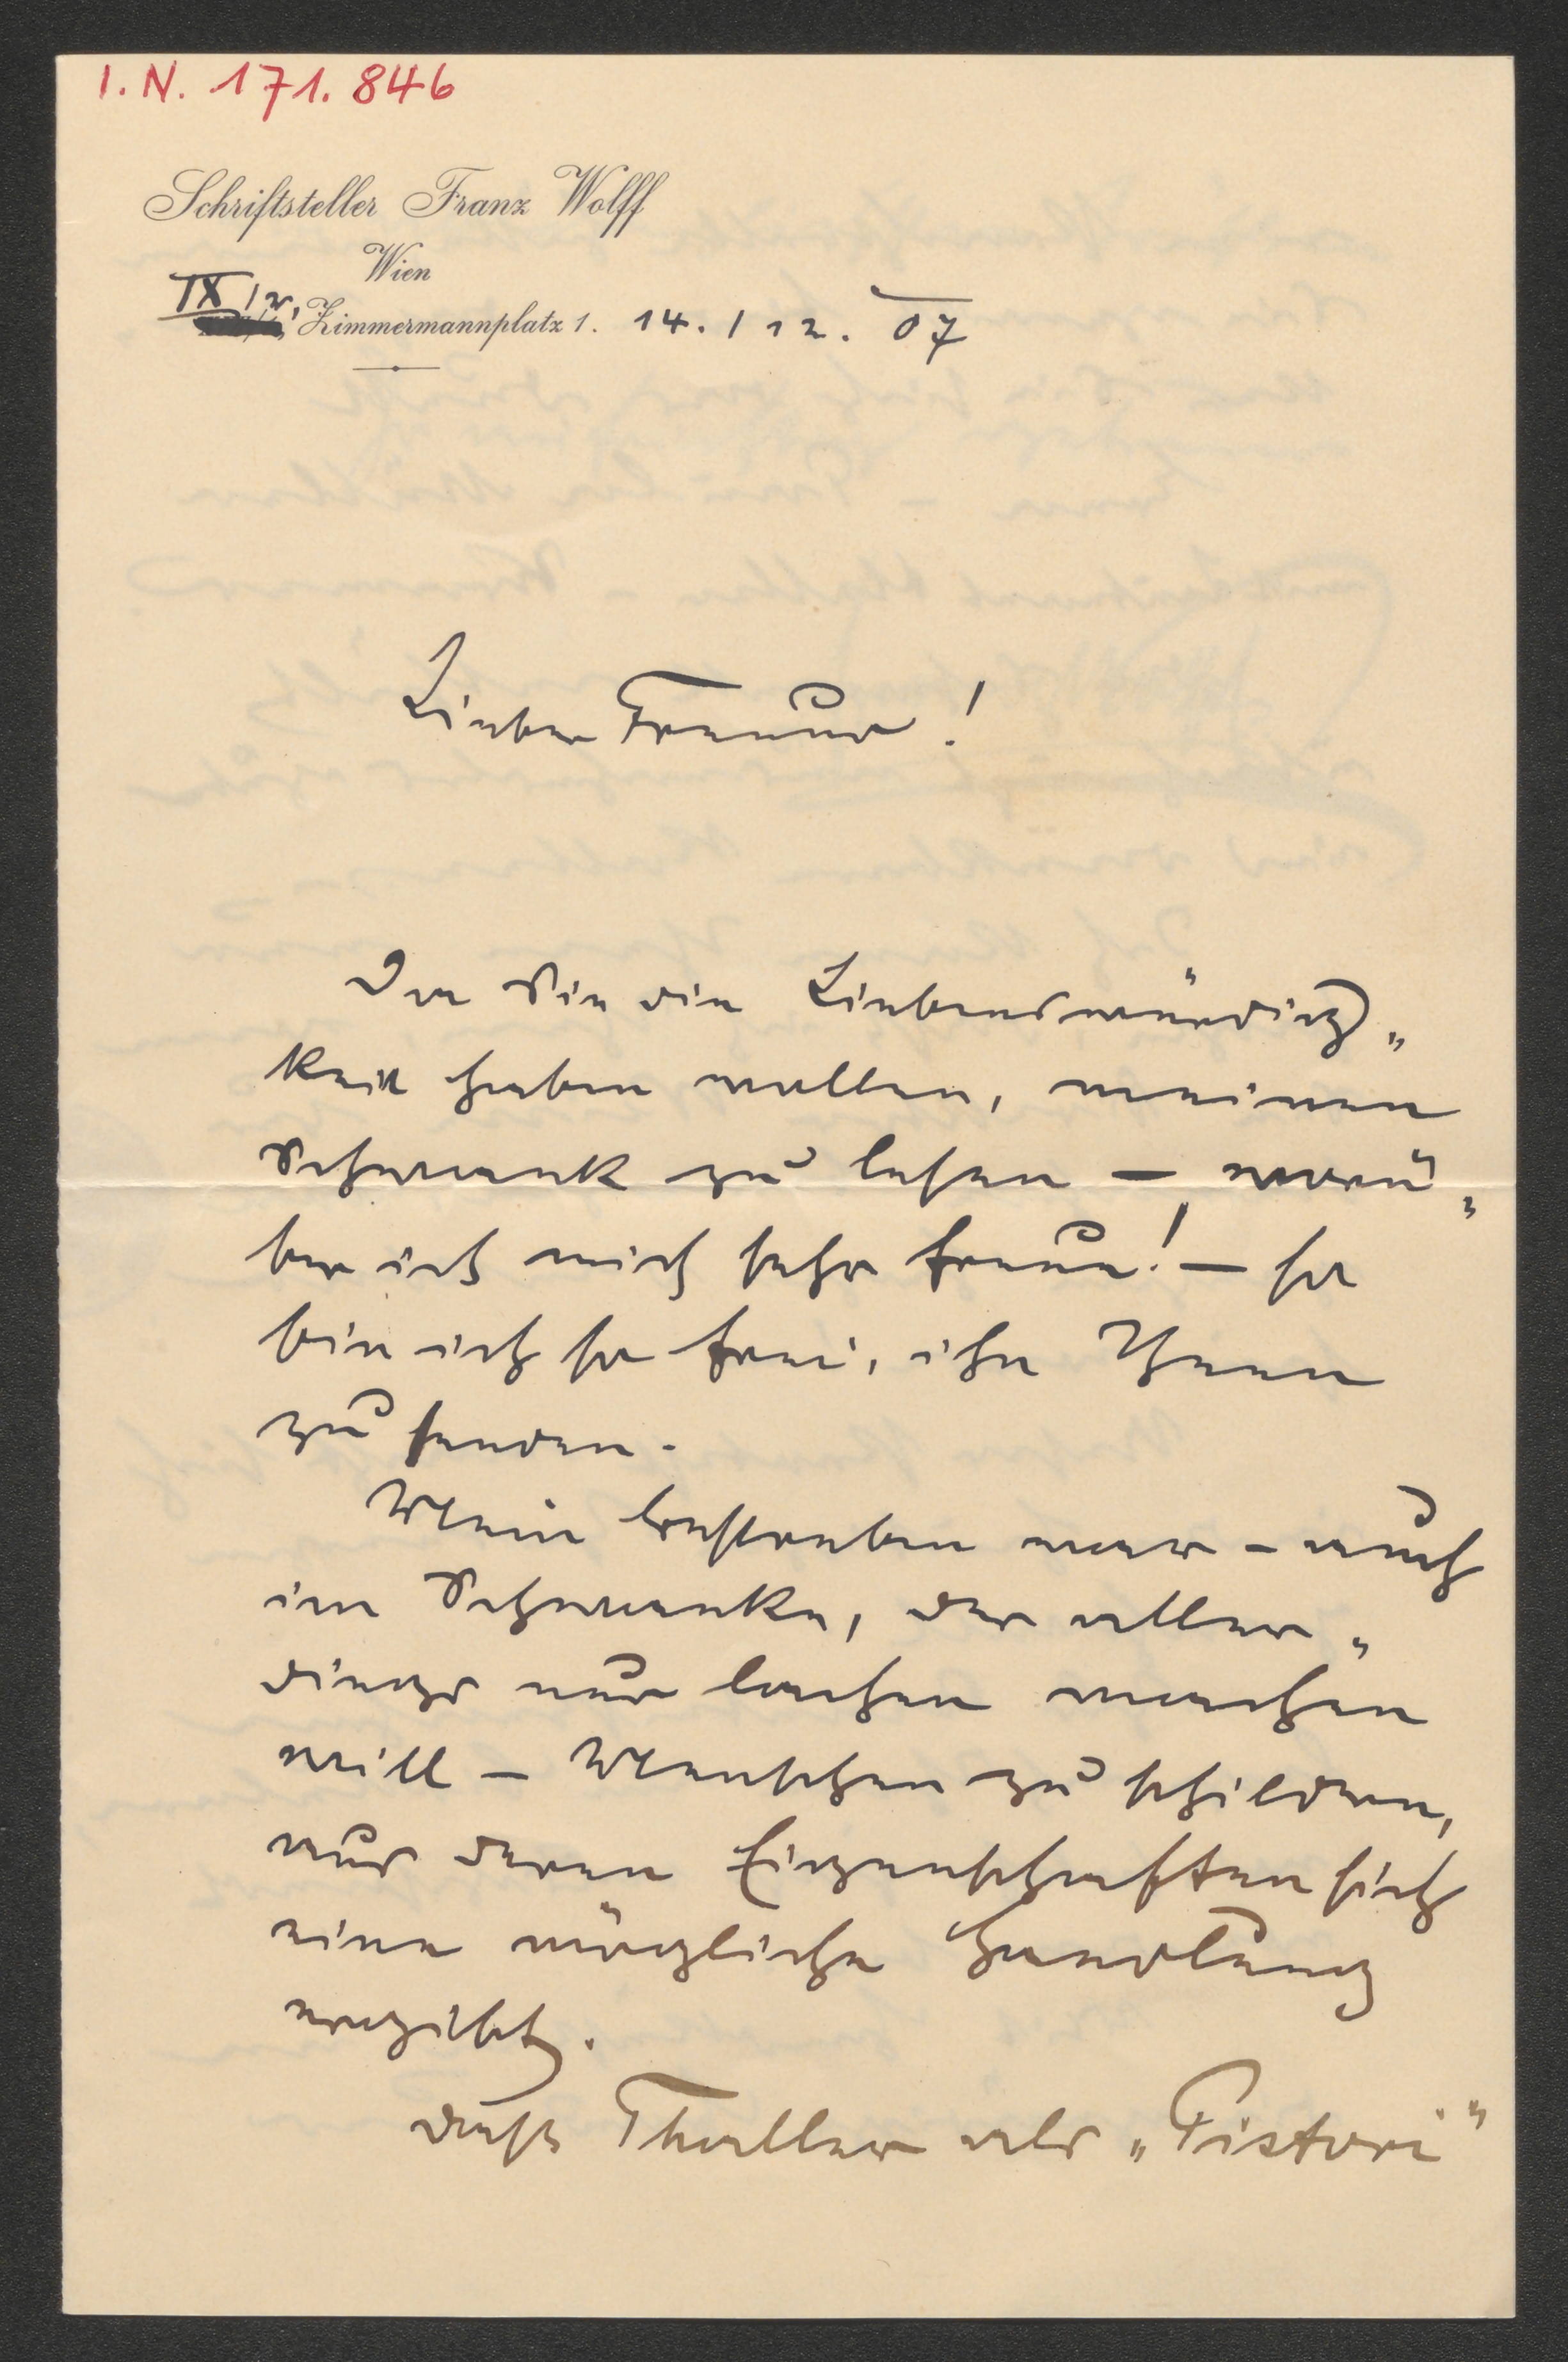 I. N. 171.846
Schriftsteller Franz Wolff
Wien
IX/2, Zimmermannplatz 1. 14./12. 07
Lieber Freund!
Da Sie die Liebenswürdig„
keit haben wollen, meinen
Schwank zu lesen – worü„
ber ich mich sehr freue! – so
bin ich so frei, ihn Ihnen
zu senden.
Mein Bestreben war – auch
im Schwanke, der aller„
dings nur lachen machen
will – Menschen zu schildern,
aus deren Eigenschaften sich
eine mögliche Handlung
ergibt.
Daß Thaller als „Pistori“